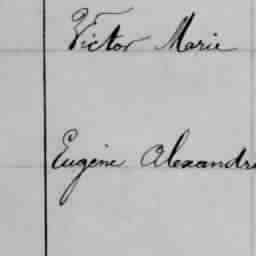 Victor Marie
Eugène Alexandre